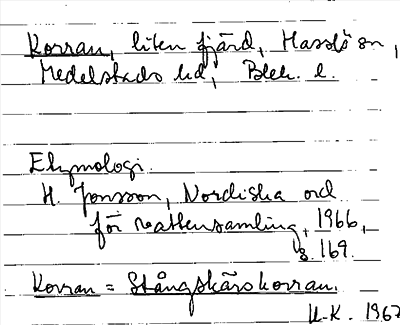 Korran, liten fjärd, Hasslö sn,
Medelstads hd, Blek. l.
Etymologi.
H. Jonsson, Nordiska ord
för vattensamling, 1966,
s. 169.
Korran = Stångskärskorran.
U.-K. 1967